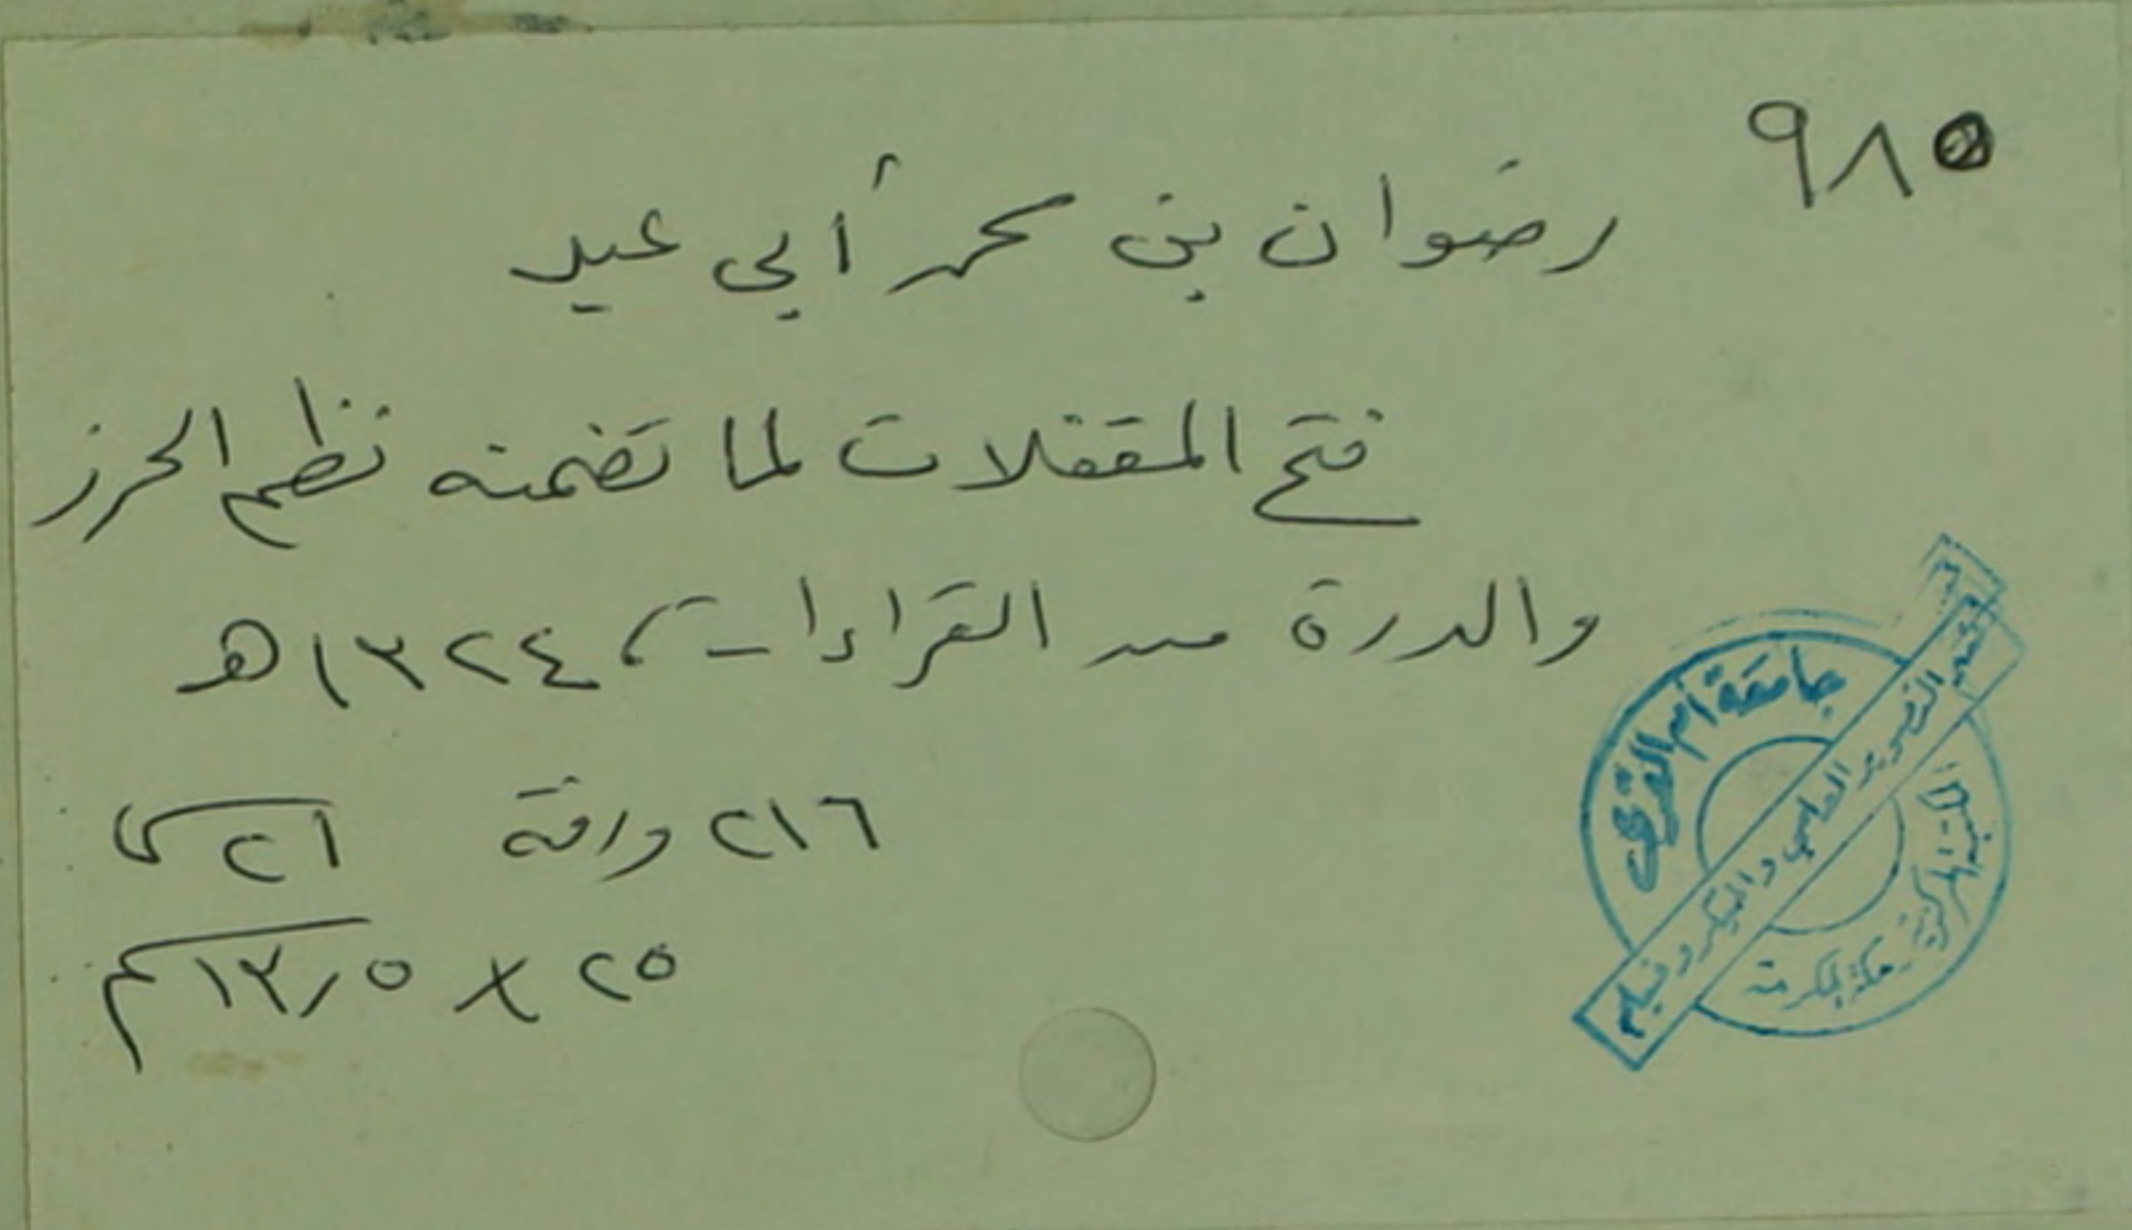 ٩٨٥
رضوان بن محمد أبي عيد
فتح المقفلات لما تضمنه نظم الحرز
والدرة من القراءات، ١٣٢٤هـ
٢١٦ ورقة ٢١ س
٢٥ × ١٣,٥ سم
جامعة أم القرى
قسم التصوير العلمي والميكروفيلم
المركزية - مكة المكرمة